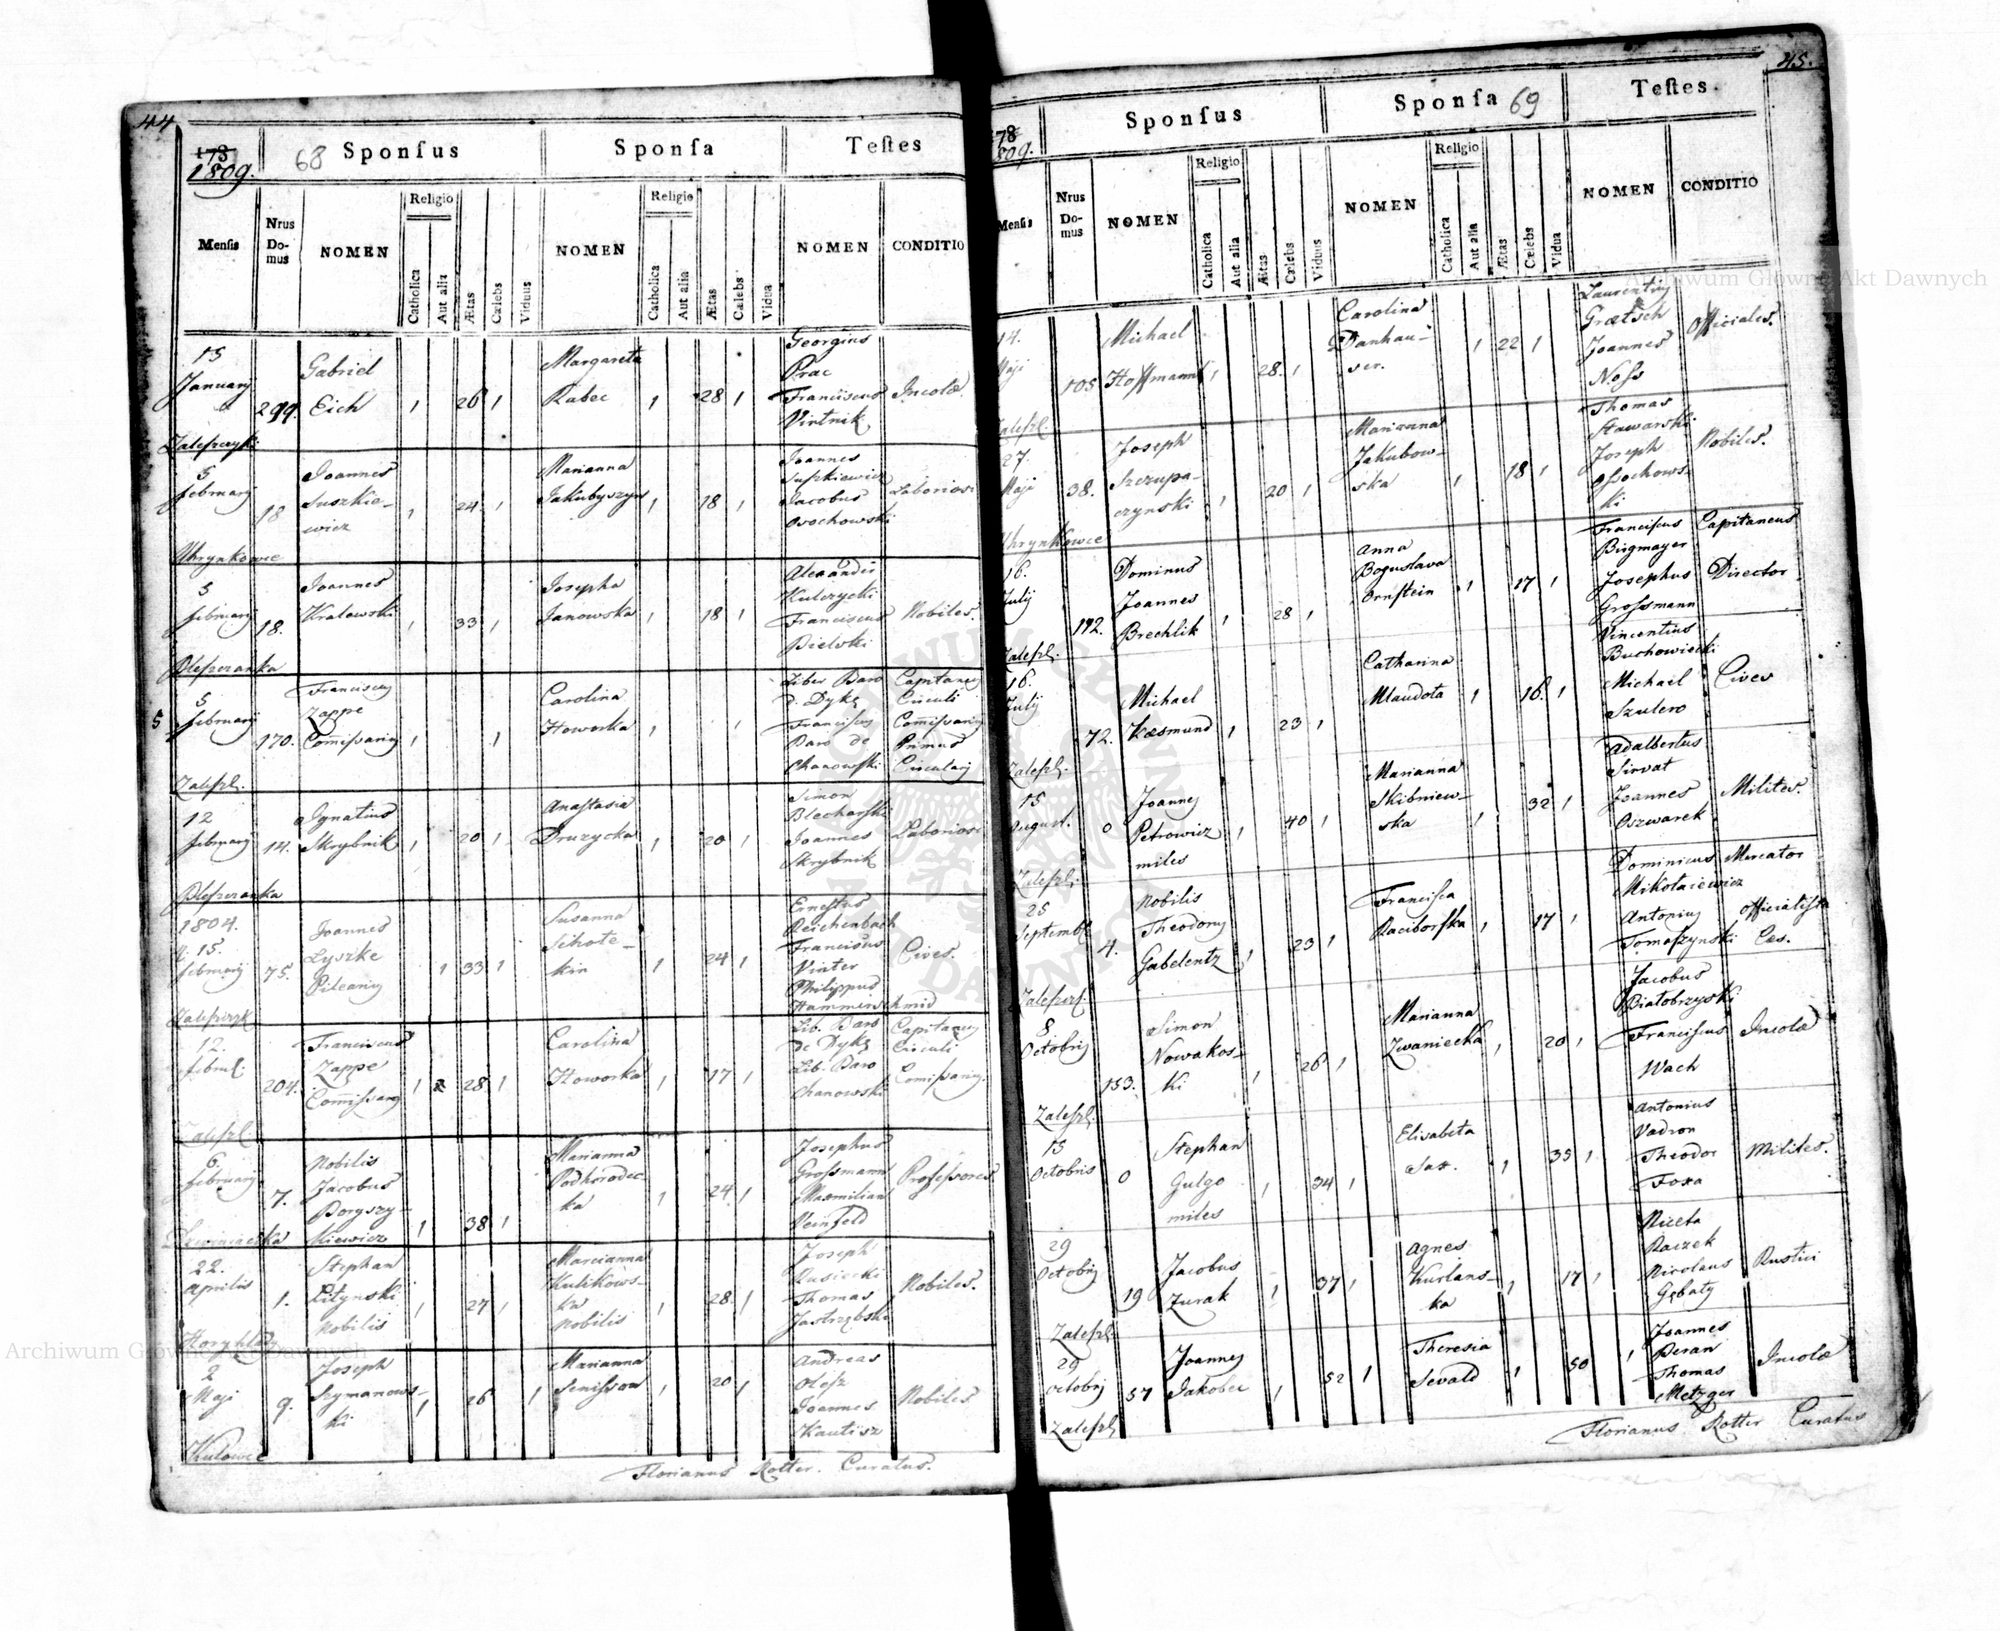 44
1809.
68
Sponſus
Sponſa
Teſtes
Menſis
Nrus Do-mus
NOMEN
Religio
Catholica
Aut alia
Ætas
Cælebs
Viduus
NOMEN
Religio
Catholica
Aut alia
Ætas
Cælebs
Vidua
NOMEN
CONDITIO
15 January
299.
Gabriel Eich
1
26
1
Margareta Rabec
1
28
1
Georgius Prac
Franciscus Vintnik
Incolæ.
Zaleszczyki
5 february
18
Joannes Suszkie-wicz
1
24
1
Marianna Jakubyszyn
1
18
1
Joannes Supkiewicz
Jacobus Osochowski
Laboriosi
Uhrynkowce
5 february
18.
Joannes Kralowski
1
33
1
Josepha Janowska
1
18
1
Alexander Kulczycki
Franciscus Bielski
Nobiles.
Bleszczanka
5 february
170.
Franciscus Zappe Comissarius
1
1
Carolina Howorka
1
1
Liber Baro d. Dyke
Franciscus Baro de Chanowski
Capitaney Circuli
Comissarius Primus Circulary
Zaleszl.
12 february
14.
Ignatius Skrybnik
1
20
1
Anastasia Druzycka
1
20
1
Simon Blecharski
Joannes Skrybnik
Laboriosi
Bleszczanka
1804.
d. 15. february
75.
Joannes Lyszke Pileariy
1
33
1
Susanna Schote-kin
1
24
1
Ernestus Reichenbach
Franciscus Vinter
Philippus Hammerschmid
Cives.
12. febru.
204.
Franciscus Zappe Comissary
1
28
1
Carolina Howorka
1
17
1
Lib. Baro de Dyke
Lib. Baro Chanowski
Capitaney Circuli
Comissariy.
Zaleszl.
6. february
7.
Nobilis Jacobus Boryszy-kiewicz
1
38
1
Marianna Podhorodec-ka
1
24
1
Josephus Grossmann
Maxmilian Veinfeld
Professores.
22. Aprilis
1.
Stephan Litynski Nobilis
1
27
1
Marcianna Kulikows-ka nobilis
1
28
1
Joseph Rusiecki
Thomas Jastrzębski
Nobiles.
Horyhlady
2 Maji
9.
Joseph Szymanows-ki
1
26
1
Marianna Senisson
1
20
1
Andreas Olesz
Joannes Kautisz
Nobiles
Kulowce
Florianus Rotter. Curatus.
45.
1809.
Sponſus
Sponſa
69
Teſtes.
Menſis
Nrus Do-mus
NOMEN
Religio
Catholica
Aut alia
Ætas
Cælebs
Viduus
NOMEN
Religio
Catholica
Aut alia
Ætas
Cælebs
Vidua
NOMEN
CONDITIO
14. Maji
105
Michael Hoffmann
1
28.
1
Carolina Danhau-ser.
1
22
1
Laurentius Grætsch
Joannes Noss
Officiales.
Zaleszl.
27 Maji
38.
Joseph Szczupa-czynski
1
20
1
Marianna Jakubow-ska
1
18
1
Thomas Stawarski.
Joseph Osochows-ki
Nobiles.
Uhrynkowce
16. July
192.
Dominus Joannes Brechlik
1
28
1
Anna Boguslava Ornstein
1
17
1
Franciscus Birgmayer
Josephus Grossmann
Capitaneus
Director
Zaleszl.
16. July
72.
Michael Kæsmund
1
23
1
Catharina Mlaudota
1
16.
1
Vincentius Buchowiecki
Michael Szulero
Cives
Zaleszl.
15 August.
0
Joannes Petrowicz miles
1
40
1
Marianna Skibniew-ska
1
32
1
Adalbertus Sirvat
Joannes Oszwarek
Milites.
Zaleszl.
25 Septembr
4.
Nobilis Theodorus Gabelentz
1
23
1
Francisca Raciborska
1
17
1
Dominicus Mikołaiewicz
Antonius Tomaszynski
Mercator
Officialista Cæs.
Zaleszcz.
8 Octobris
153.
Simon Nowakos-ki
1
26
1
Marianna Zwaniecka
1
20
1
Jacobus Białobrzyski
Franciscus Wach
Incolæ
Zaleszl.
13 Octobris
0
Stephan Gulgo miles
1
34
1
Elisabeta Sax.
1
35
1
Antonius Vadron
Theodor Foxa
Milites.
29 Octobris
19
Jacobus Zurak
1
37
1
Agnes Kurlans-ka
1
17
1
Niceta Raczek
Nicolaus Gębaty
Rustici
Zaleszl.
29 Octobris
57
Joannes Jakobec
1
52
1
Theresia Sevald
1
50
1
Joannes Beran
Thomas Metzger
Incolæ
Zaleszl.
Florianus Rotter Curatus
Archiwum Główne Akt Dawnych
Archiwum Główne Akt Dawnych